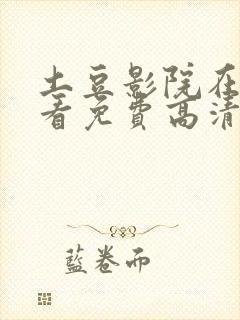 土豆影院在
看免费高清
藍卷而